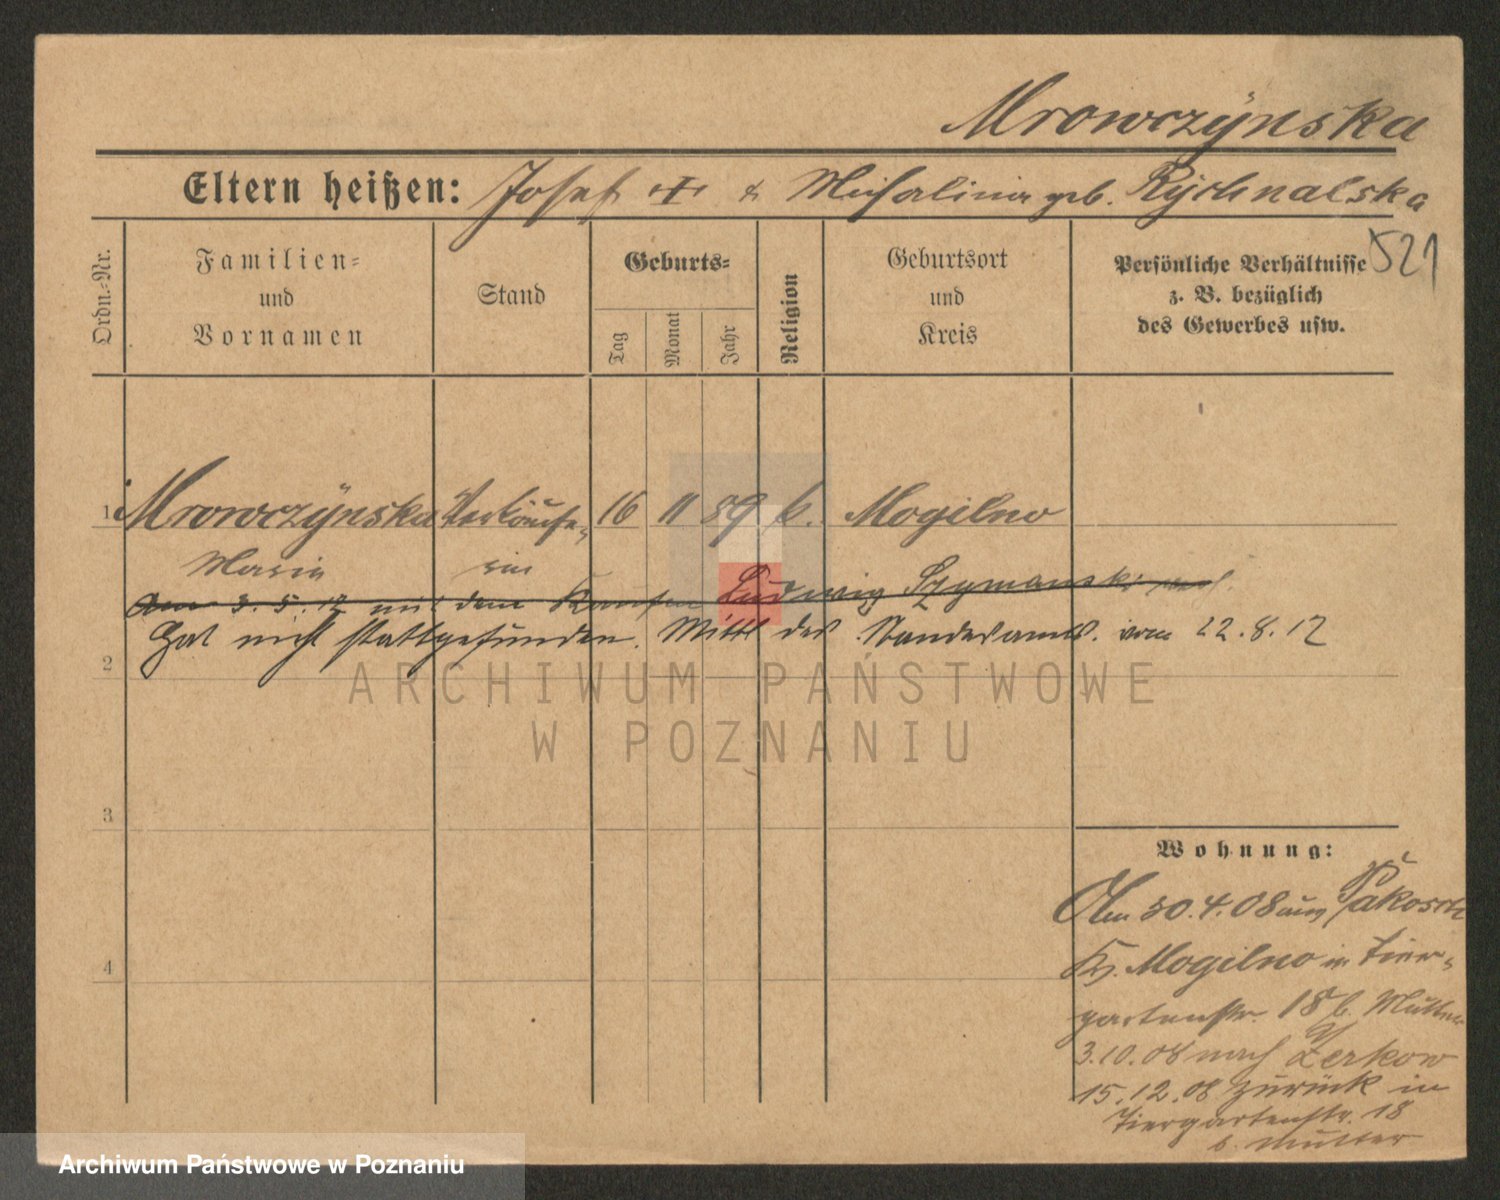 Mrowczÿnska
Eltern heißen: Josef + & Michalina geb. Rÿchnalska
521
Ordn.-Nr.
Familien-
und
Vornamen
Stand
Geburts-
Tag
Monat
Jahr
Religion
Geburtsort
und
Kreis
Persönliche Verhältnisse
z. B. bezüglich
des Gewerbes usw.
1 Mrowczÿnska Verkäufe- 16 11 89 k. Mogilno
Maria rin
Am 3.5.12 mit dem Kaufm Ludwig Szymanski verh.
Hat nicht stattgefunden. Mittl des Standesamts. vom 22.8.12
2
ARCHIWUM PAŃSTWOWE
W POZNANIU
3
Wohnung:
Am 30.4.08 aus Pakosch
4
Kr. Mogilno in Tier-
gartenstr. 18 b. Mutter
3.10.08 nach Zerkow
15.12.08 zurück in
Tiergartenstr. 18
b. Mutter
Archiwum Państwowe w Poznaniu